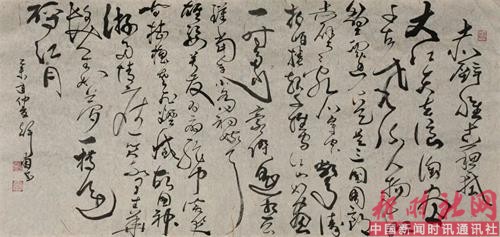 大江东去浪淘尽
千古风流人物故
垒西边人道是三国周郎
赤壁乱石穿空惊涛
拍岸卷起千堆雪江山如画
一时多少豪杰遥想公
瑾当年小乔初嫁了
雄姿英发羽扇纶巾谈笑
间樯橹灰飞烟灭故国神
游多情应笑我早生华
发人生如梦一尊还
酹江月
中国新闻时讯通讯社